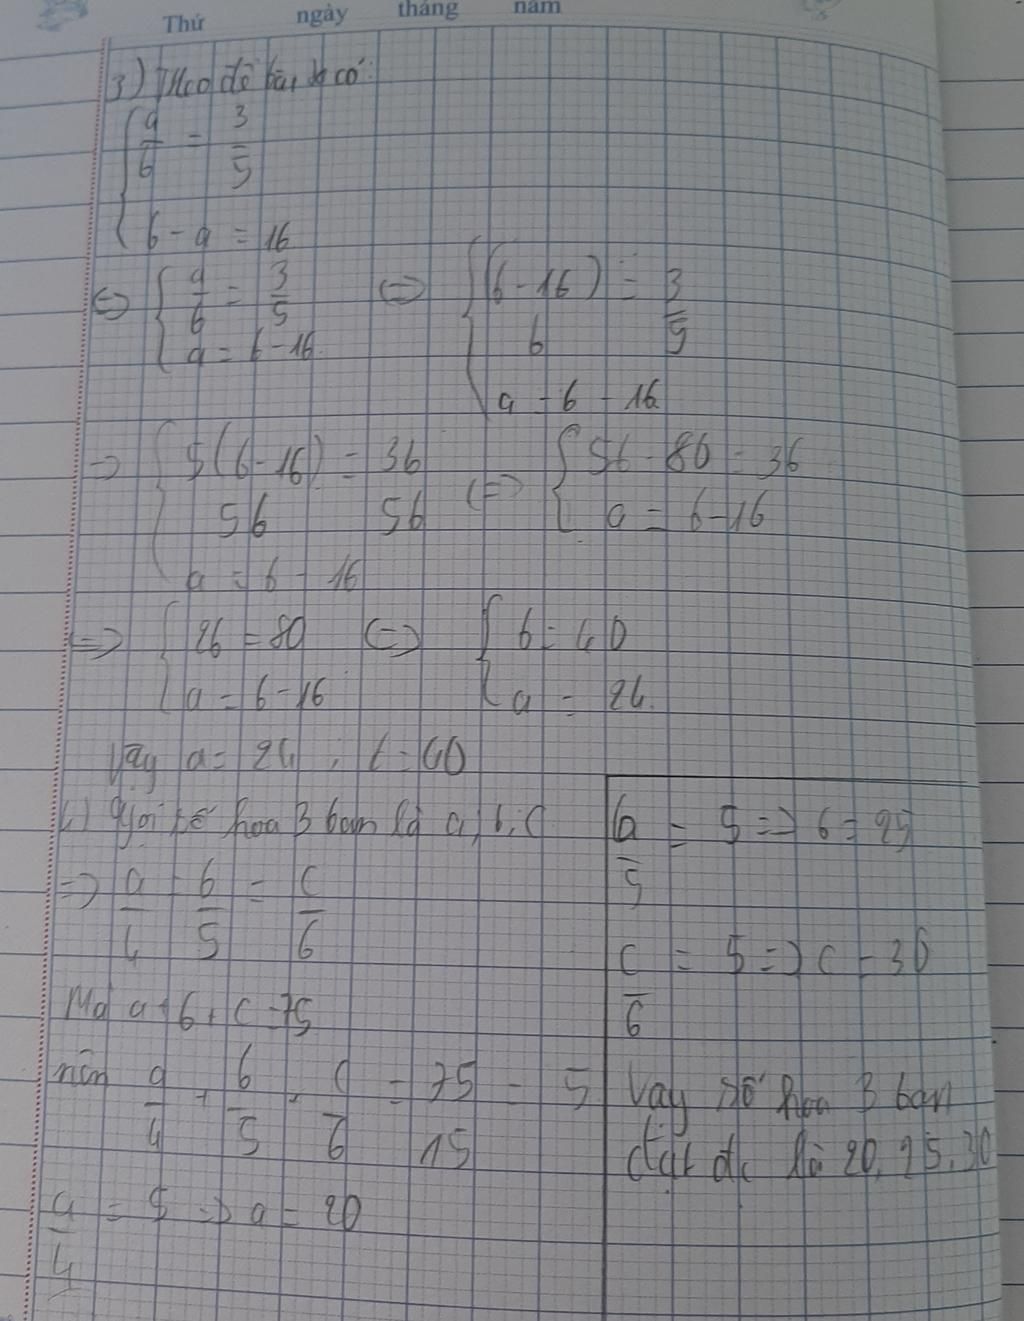 Thứ ngày tháng năm
3) Theo đề bài ta có:
{ a/b = 3/5
{ b - a = 16
<=> { a/b = 3/5 <=> { (b-16)/b = 3/5
{ a = b - 16 { a = b - 16
=> { 5(b-16)/5b = 3b/5b <=> { 5b - 80 = 3b
{ a = b - 16 { a = b - 16
=> { 2b = 80 <=> { b = 40
{ a = b - 16 { a = 24.
Vậy a = 24 ; b = 40
4) Gọi số hoa 3 bạn là a, b, c
=> a/4 = b/5 = c/6
Mà a + b + c = 75
nên a/4 + b/5 + c/6 = 75/15 = 5
a/4 = 5 => a = 20
b/5 = 5 => b = 25
c/6 = 5 => c = 30
Vậy số hoa 3 bạn
đạt đc là 20, 25, 30